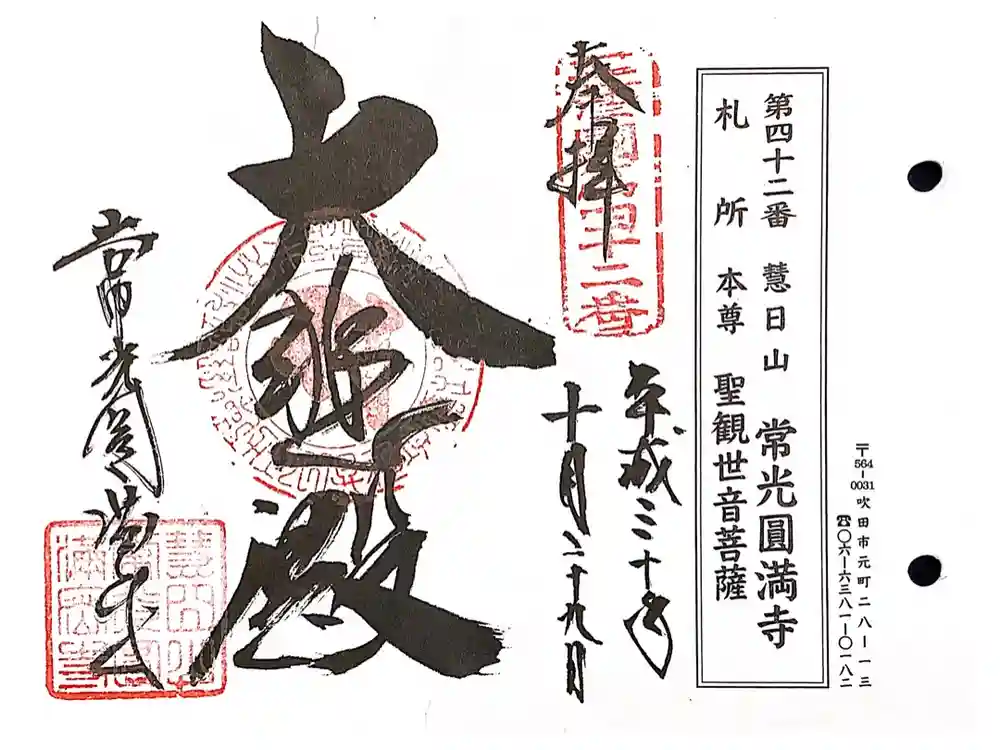 〒564-0031 吹田市元町二八ー一三
☎〇六ー六三八一ー〇一八二
第四十二番 慧日山 常光圓満寺
札所 本尊 聖観世音菩薩
奉拝
平成三十年
十月二十九日
大悲殿
常光圓満寺